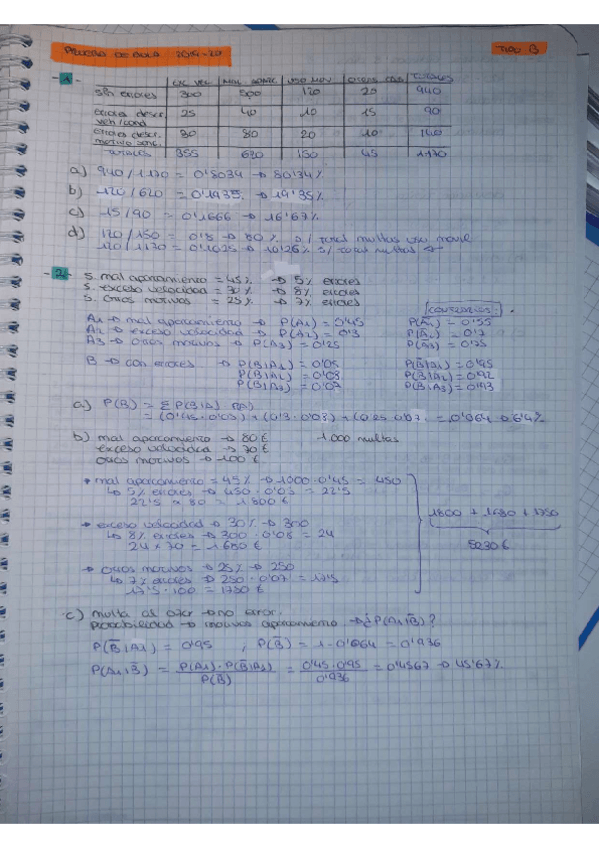 PRUEBA DE AULA 2019-20 TIPO B
-1- EXC. VEL. MAL APARC USO MOV OTRAS TOTALES
sin errores 300 500 120 20 940
errores descr. veh/cond 25 40 10 15 90
errores descr. motivo sanc. 30 80 20 10 140
TOTALES 355 620 150 45 1170
a) 940/1170 = 0'8034 → 80'34%
b) 120/620 = 0'1935 → 19'35%
c) 15/90 = 0'1666 → 16'67%
d) 120/150 = 0'8 → 80% s/ total multas uso movil
120/1170 = 0'1025 → 10'26% s/ total multas ←
-2- S. mal aparcamiento = 45% → 5% errores
S. exceso velocidad = 30% → 8% errores
S. otros motivos = 25% → 7% errores
CONTRARIOS:
A1 → mal aparcamiento → P(A1) = 0'45 P(Ā1) = 0'55
A2 → exceso velocidad → P(A2) = 0'3 P(Ā2) = 0'7
A3 → otros motivos → P(A3) = 0'25 P(Ā3) = 0'75
B → con errores → P(B|A1) = 0'05 P(B̄|A1) = 0'95
P(B|A2) = 0'08 P(B̄|A2) = 0'92
P(B|A3) = 0'07 P(B̄|A3) = 0'93
a) P(B) = Σ P(B|A) P(A)
= (0'45·0'05) + (0'3·0'08) + (0'25·0'07) = 0'064 → 6'4%
b) mal aparcamiento → 80€ 1.000 multas
exceso velocidad → 70€
otros motivos → 100€
• mal aparcamiento = 45% → 1000·0'45 = 450
↳ 5% errores → 450·0'05 = 22'5
22'5 × 80 = 1800€
1800 + 1680 + 1750
→ exceso velocidad → 30% → 300
↳ 8% errores → 300·0'08 = 24
5230€
24 × 70 = 1680€
→ otros motivos → 25% → 250
↳ 7% errores → 250·0'07 = 17'5
17'5·100 = 1750€
c) multa al azar → no error.
probabilidad → motivos aparcamiento → ¿P(A1|B̄)?
P(B̄|A1) = 0'95 , P(B̄) = 1-0'064 = 0'936
P(A1|B̄) = P(A1)·P(B̄|A1) / P(B̄) = 0'45·0'95 / 0'936 = 0'4567 → 45'67%